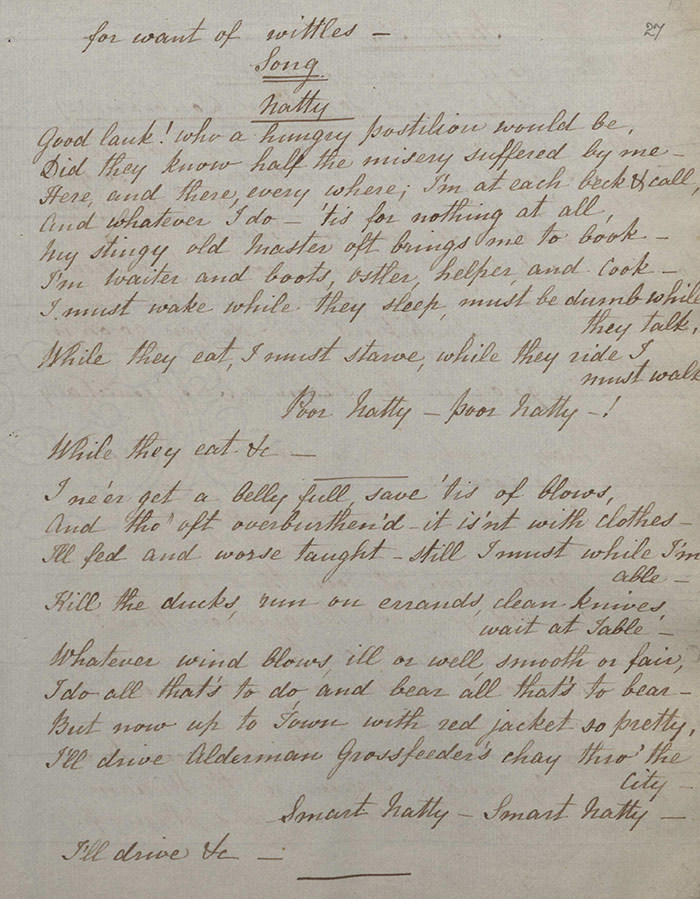 27
for want of wittles —
Song
Natty
Good lauk! who a hungry postilion would be,
Did they know half the misery suffered by me —
Here, and there, every where; I'm at each beck & call,
And whatever I do — 'tis for nothing at all,
My stingy old Master oft brings me to book —
I'm waiter and boots, ostler, helper, and Cook —
I must wake while they sleep, must be dumb while
they talk,
While they eat, I must starve, while they ride I
must walk
Poor Natty — poor Natty —!
While they eat &c —
I ne'er get a belly full, save 'tis of blows,
And tho' oft overburthen'd — it is'nt with clothes —
Ill fed and worse taught — still I must while I'm
able —
Kill the ducks, run on errands, clean knives,
wait at Table —
Whatever wind blows, ill or well, smooth or fair,
I do all that's to do, and bear all that's to bear —
But now up to Town with red jacket so pretty,
I'll drive Alderman Grossfeeder's chay thro' the
City —
Smart Natty — Smart Natty —
I'll drive &c —